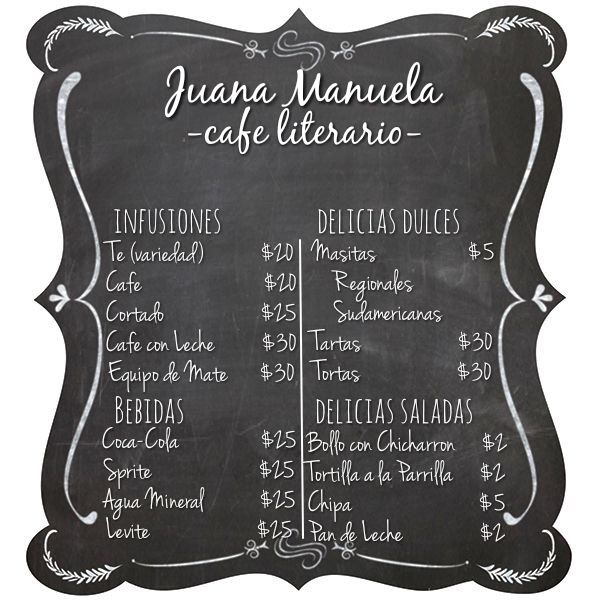 Juana Manuela
-cafe literario-
INFUSIONES
Te (variedad) $20
Cafe $20
Cortado $25
Cafe con Leche $30
Equipo de Mate $30
BEBIDAS
Coca-Cola $25
Sprite $25
Agua Mineral $25
Levite $25
DELICIAS DULCES
Masitas $5
Regionales
Sudamericanas
Tartas $30
Tortas $30
DELICIAS SALADAS
Bollo con Chicharron $2
Tortilla a la Parrilla $2
Chipa $5
Pan de Leche $2